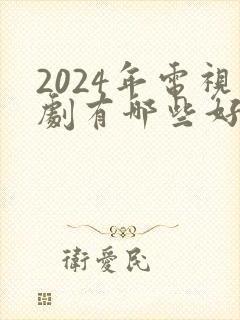 2024年電視
劇有哪些好
衛愛民